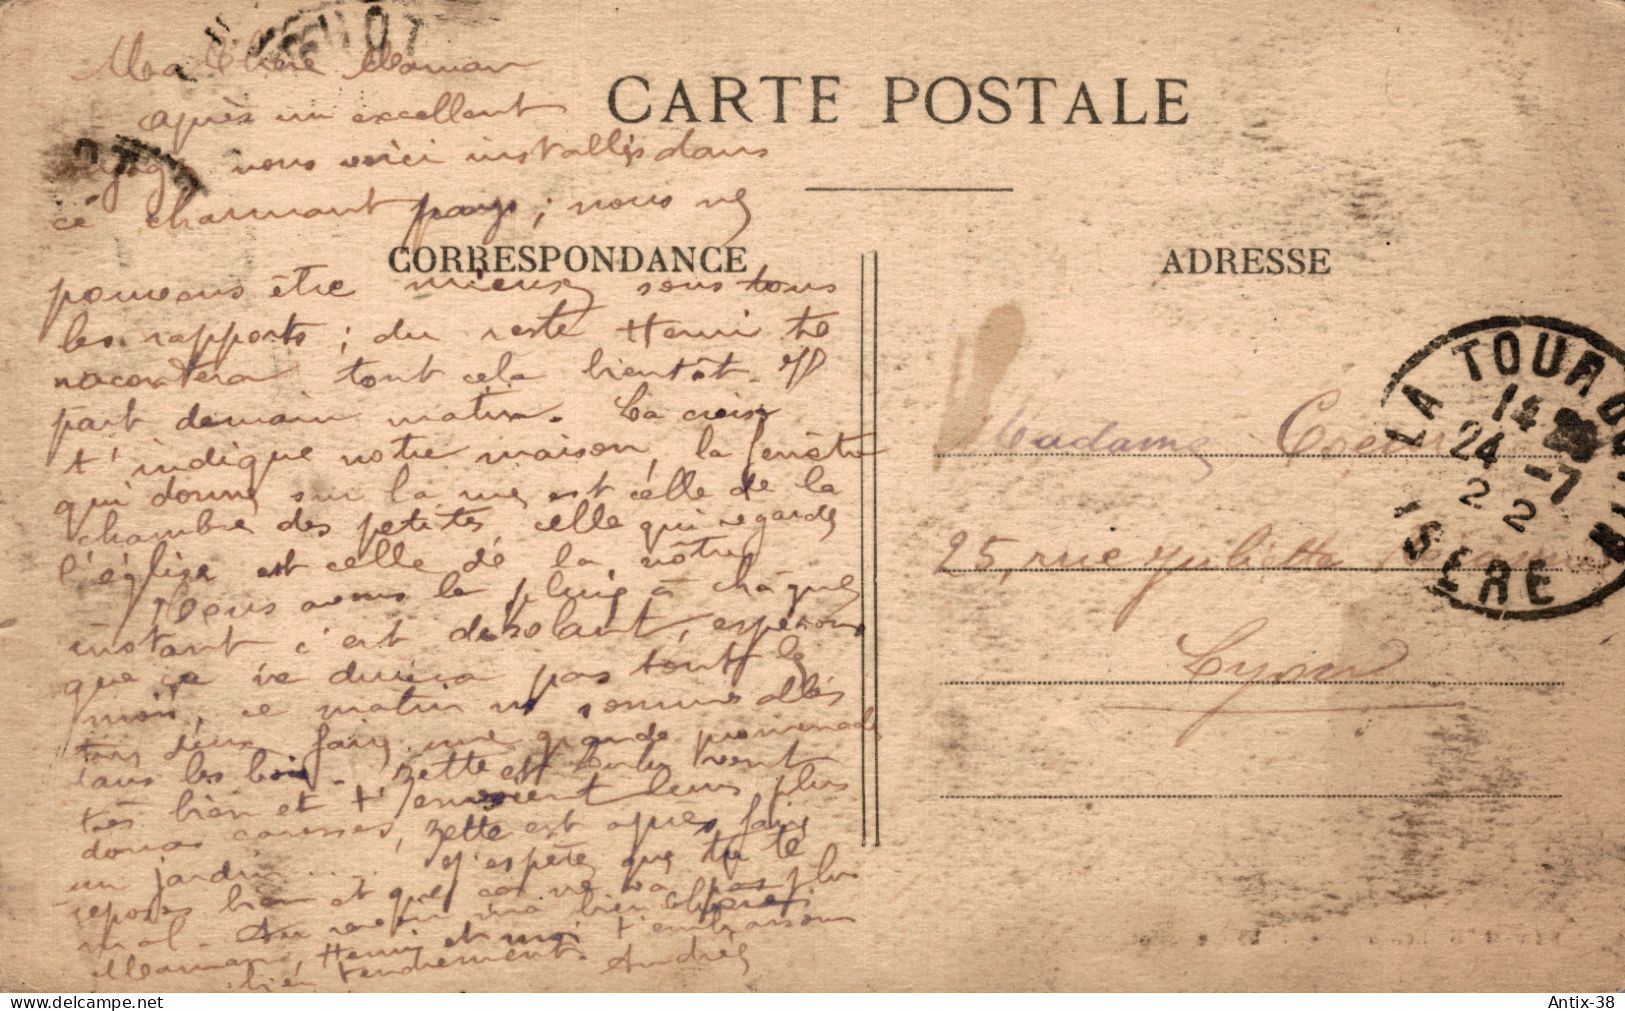 Ma Chère Maman
CARTE POSTALE
après un excellent
voyage nous voici installés dans
ce charmant pays ; nous ne
CORRESPONDANCE
ADRESSE
pouvons être mieux sous tous
les rapports ; du reste Henri te
racontera tout cela bientôt. Il
part demain matin. La croix
t'indique notre maison, la fenêtre
qui donne sur la rue est celle de la
chambre des petites, celle qui regarde
l'église est celle de la nôtre
Nous avons la pluie à chaque
instant c'est désolant, espérons
que ça ne durera pas tout le
mois, ce matin ns sommes allés
tous deux faire une grande promenade
dans les bois. Zette et Lulu vont
très bien et t'envoient leurs plus
douces caresses, Zette est après faire
un jardin.... J'espère que tu te
reposes bien et que ça ne va pas plus
mal. Au revoir ma bien chère
Maman, Henri et moi t'embrassons
bien tendrement. Andrée
Madame Coeur
25, rue Juliette Récamier
Lyon
LA TOUR DU PIN
14
24 -7
22
ISÈRE
Antix-38